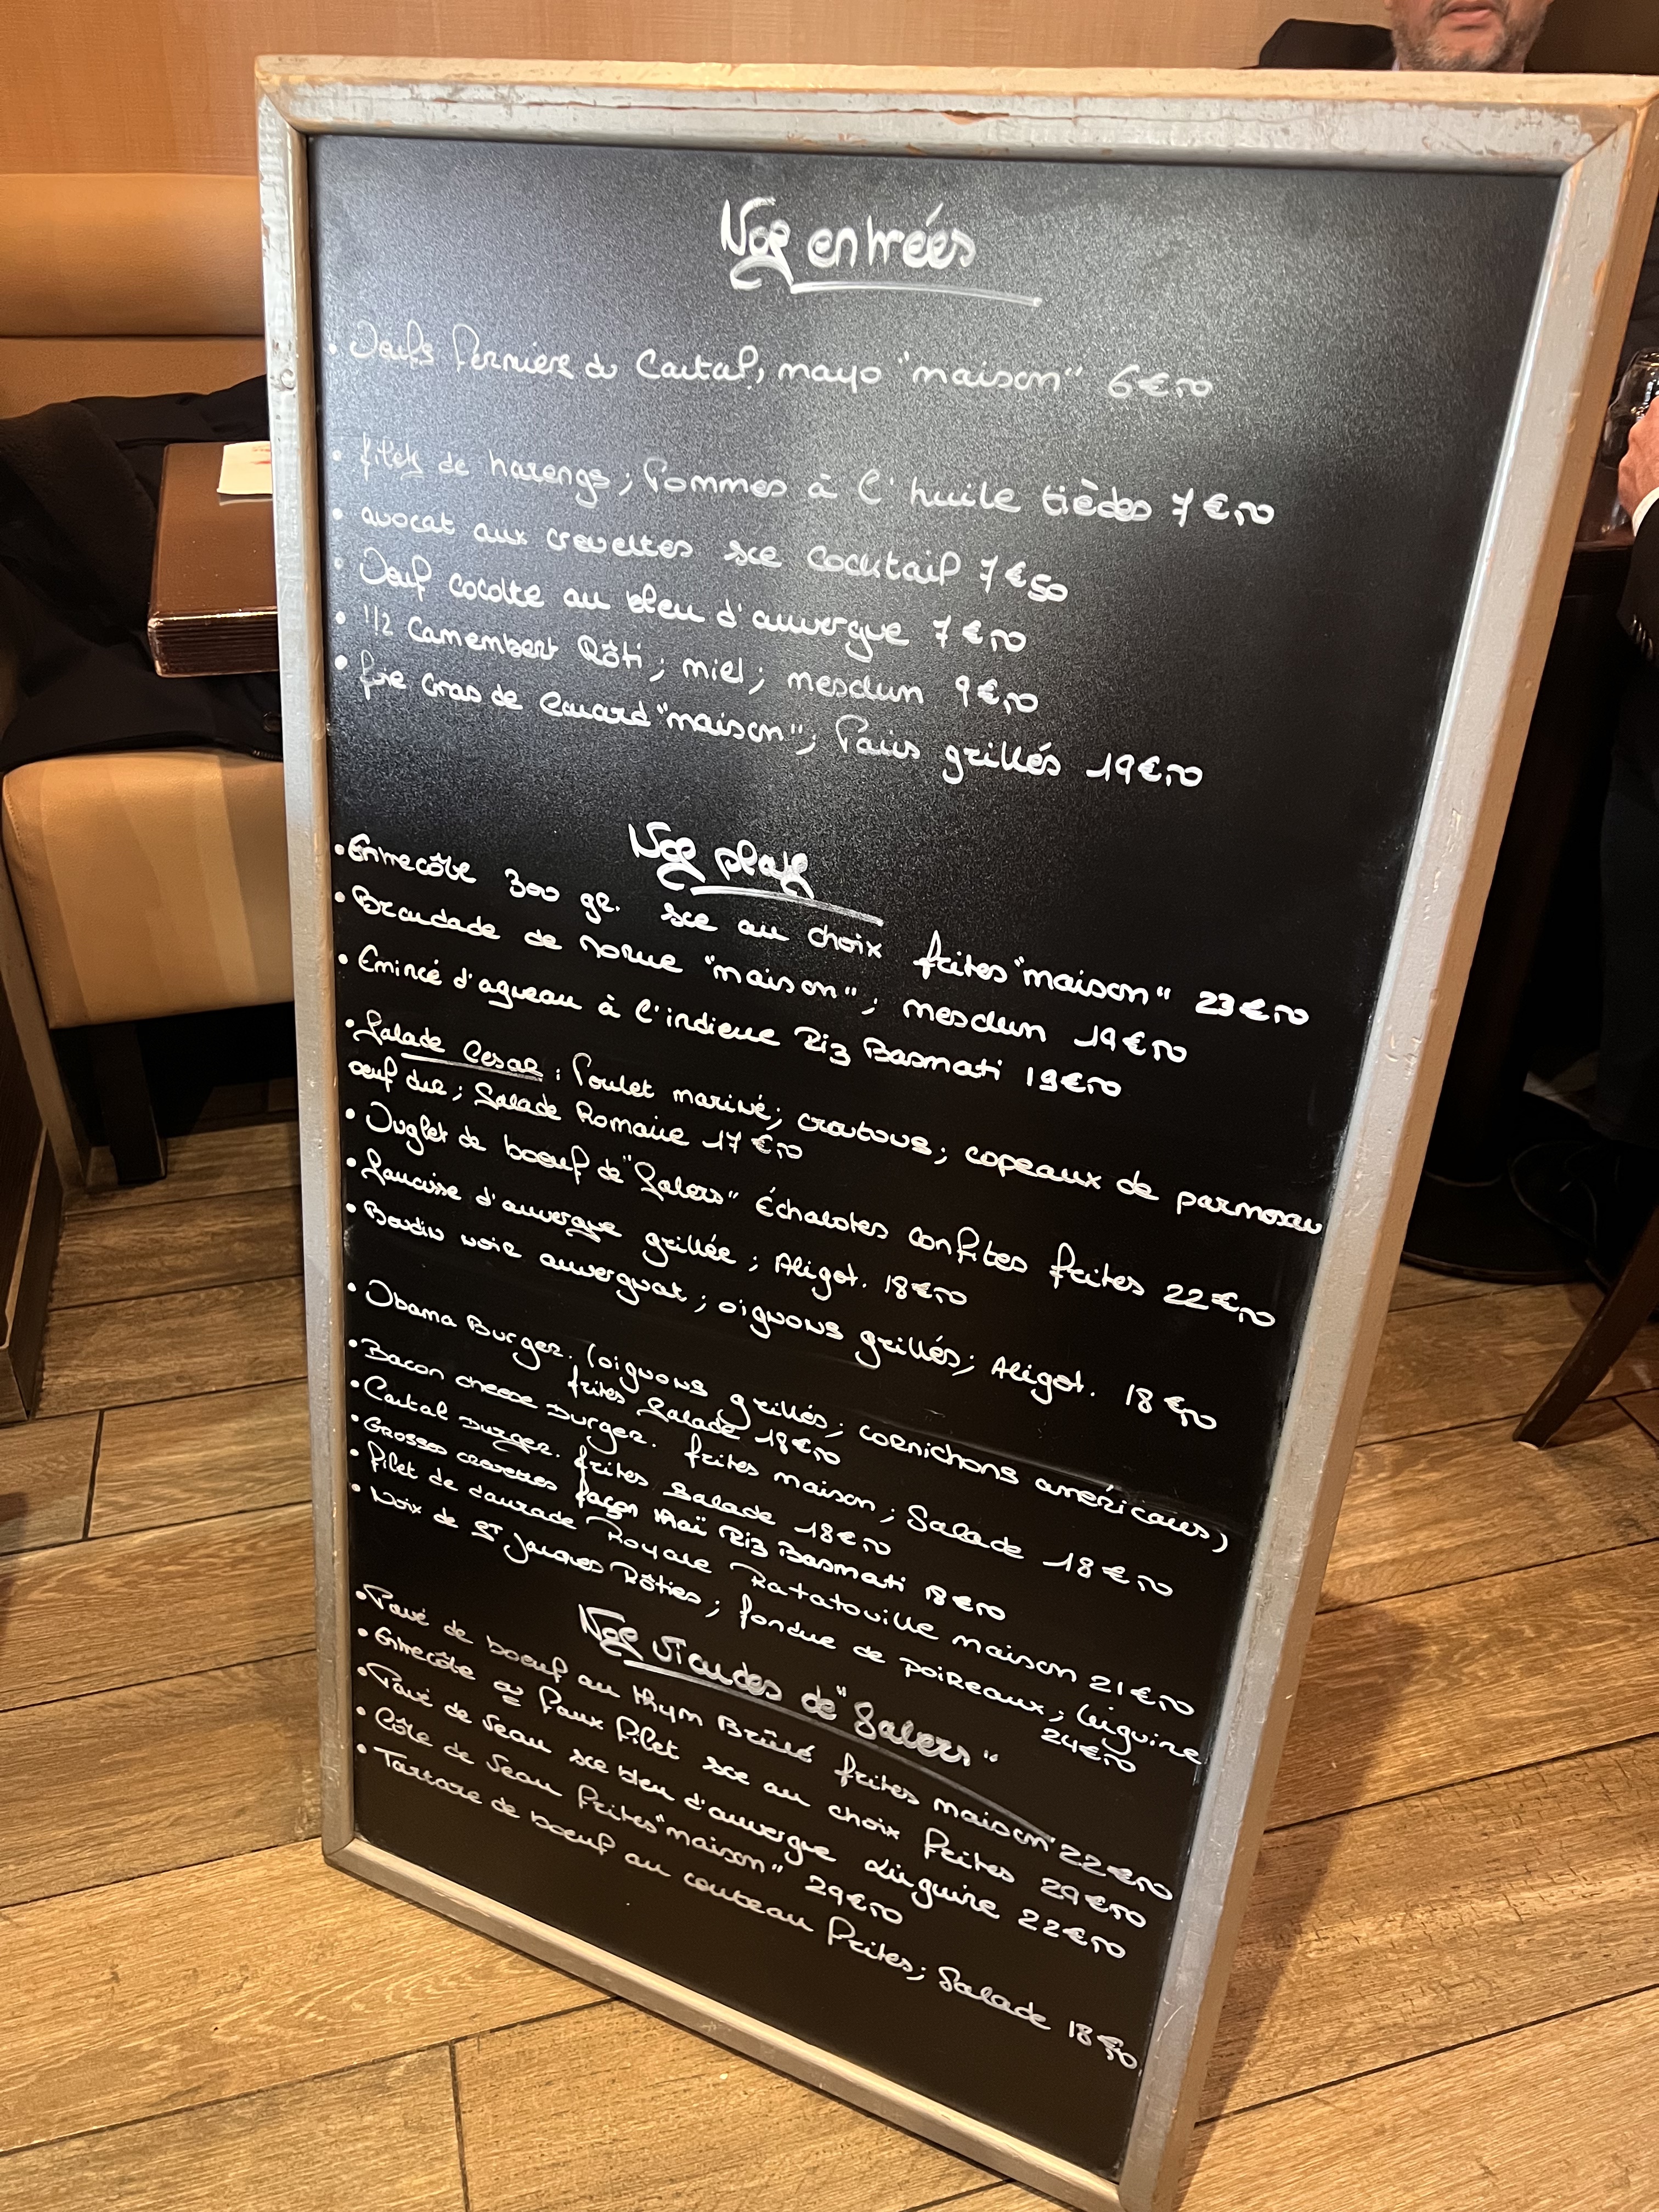 Nos entrées
• Oeufs fermiers du Cantal, mayo "maison" 6€50
• filets de harengs ; Pommes à l'huile tièdes 7€50
• avocat aux crevettes sce cocktail 7€50
• Oeuf cocotte au bleu d'auvergne 7€50
• 1/2 Camembert Rôti ; miel ; mesclun 9€50
• foie Gras de canard "maison" ; Pains grillés 19€50
Nos plats
• Entrecôte 300 gr. sce au choix frites "maison" 23€50
• Brandade de morue "maison" ; mesclun 19€50
• Emincé d'agneau à l'indienne Riz Basmati 19€50
• Salade Cesar : Poulet mariné ; croutons ; copeaux de parmesan
oeuf dur ; Salade Romaine 17€50
• Onglet de boeuf de "Salers" Échalotes confites frites 22€50
• Saucisse d'auvergne grillée ; Aligot. 18€50
• Boudin noir auvergnat ; oignons grillés ; Aligot. 18€50
• Obama Burger. (oignons grillés ; cornichons américains)
frites Salade 18€50
• Bacon cheese Burger. frites maison ; Salade 18€50
• Cantal Burger. frites Salade 18€50
• Grosses crevettes façon thaï Riz Basmati 18€50
• filet de daurade Royale Ratatouille maison 21€50
• Noix de St Jacques Rôties ; fondue de poireaux ; linguine
24€50
Nos Viandes de "Salers"
• Pavé de boeuf au thym Brûlé frites maison 22€50
• Entrecôte ou faux filet sce au choix frites 29€50
• Pavé de veau sce bleu d'auvergne Linguine 22€50
• Côte de veau frites "maison" 29€50
• Tartare de boeuf au couteau frites ; Salade 18€50